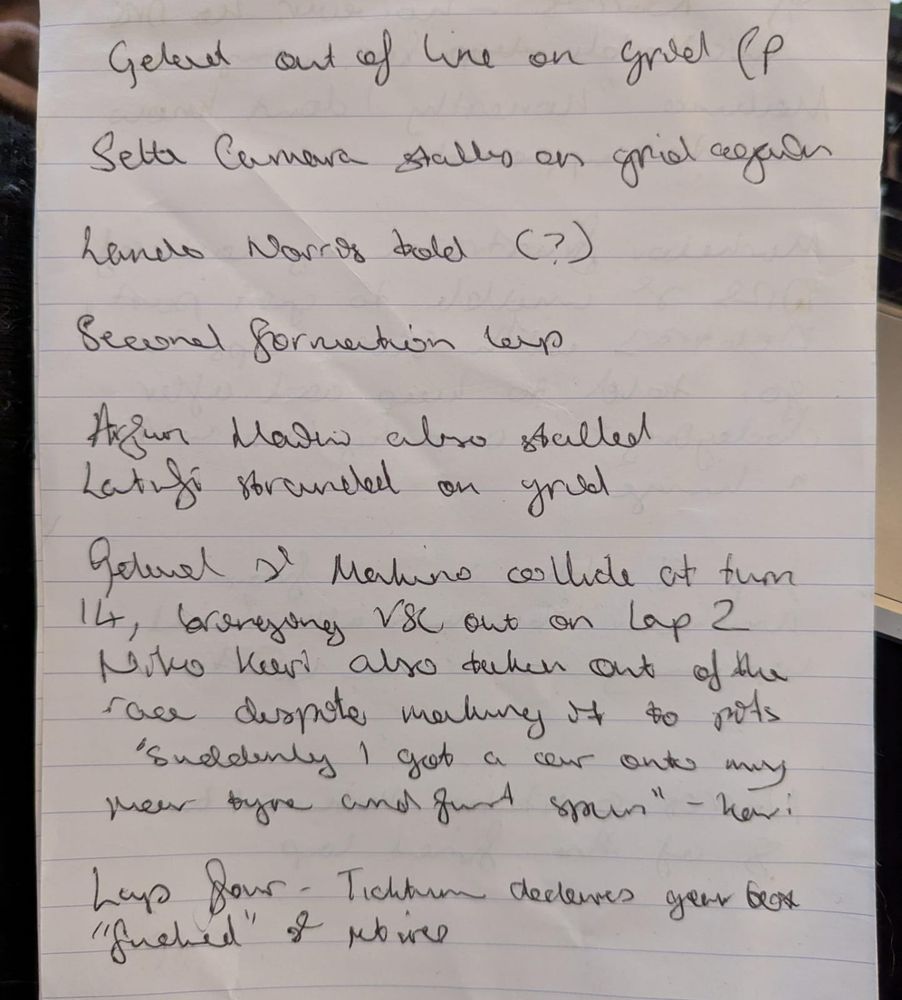 Gelael out of line on grid (P
Sette Camara stalls on grid again
Lando Norris told (?)
Second formation lap
Arjun Maini also stalled
Latifi stranded on grid
Gelael & Makino collide at turn
14, bringing VSC out on Lap 2
Niko Kari also taken out of the
race despite making it to pits
"Suddenly I got a car onto my
rear tyre and just spun" - Kari
Lap four - Ticktum declares gear box
"fucked" & retires